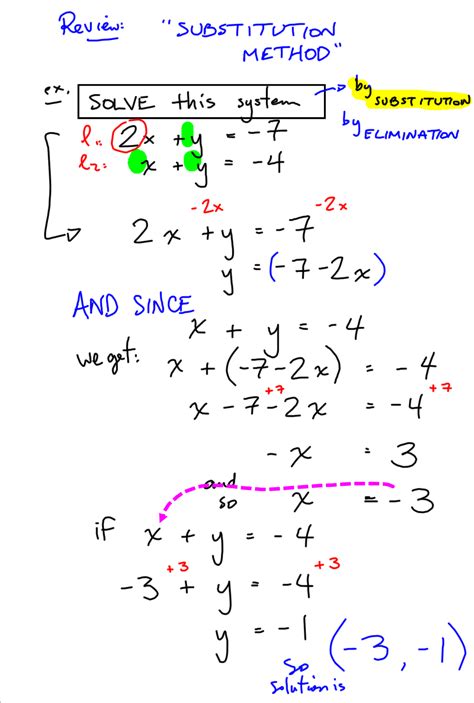 Review: "SUBSTITUTION
METHOD"
ex. SOLVE this system
by SUBSTITUTION
by ELIMINATION
l₁: 2x + y = -7
l₂: x + y = -4
-2x -2x
2x + y = -7
y = (-7 - 2x)
AND SINCE
x + y = -4
we get: x + (-7 - 2x) = -4
+7 +7
x - 7 - 2x = -4
- x = 3
and so x = -3
if x + y = -4
+3 +3
-3 + y = -4
y = -1
So solution is (-3, -1)